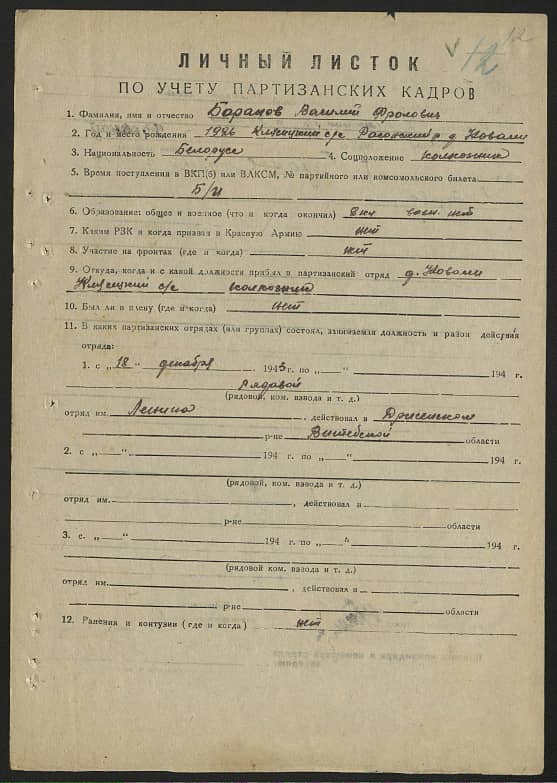 12
12
ЛИЧНЫЙ ЛИСТОК
ПО УЧЕТУ ПАРТИЗАНСКИХ КАДРОВ
1. Фамилия, имя и отчество Баранов Василий Фролович
2. Год и место рождения 1926 с/с д. Ковали
3. Национальность Белорусс 4. Соцположение колхозник
5. Время поступления в ВКП(б) или ВЛКСМ, № партийного или комсомольского билета
Б/П
6. Образование: общее и военное (что и когда окончил) воен. нет
7. Каким РВК и когда призван в Красную Армию нет
8. Участие на фронтах (где и когда) нет
9. Откуда, когда и с какой должности прибыл в партизанский отряд д. Ковали
с/с колхозник
10. Был ли в плену (где и когда) нет
11. В каких партизанских отрядах (или группах) состоял, занимаемая должность и район действия
отряда:
1. с „18" декабря 1943 г. по „ " 194 г.
Рядовой
(рядовой, ком. взвода и т. д.)
отряд им. Ленина , действовал в
р-не Витебской области
2. с „ " 194 г. по „ " 194 г.
(рядовой, ком. взвода и т. д.)
отряд им. , действовал в
р-не области
3. с „ " 194 г. по „ " 194 г.
(рядовой ком. взвода и т. д.)
отряд им. , действовал в
р-не области
12. Ранения и контузии (где и когда) нет